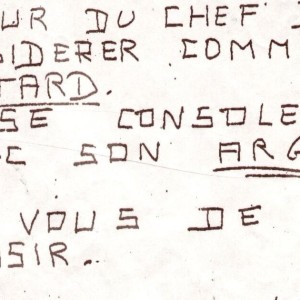 UR DU CHEF
SIDERER COMM
TARD.
SE CONSOLE
C SON ARG
VOUS DE
SIR.